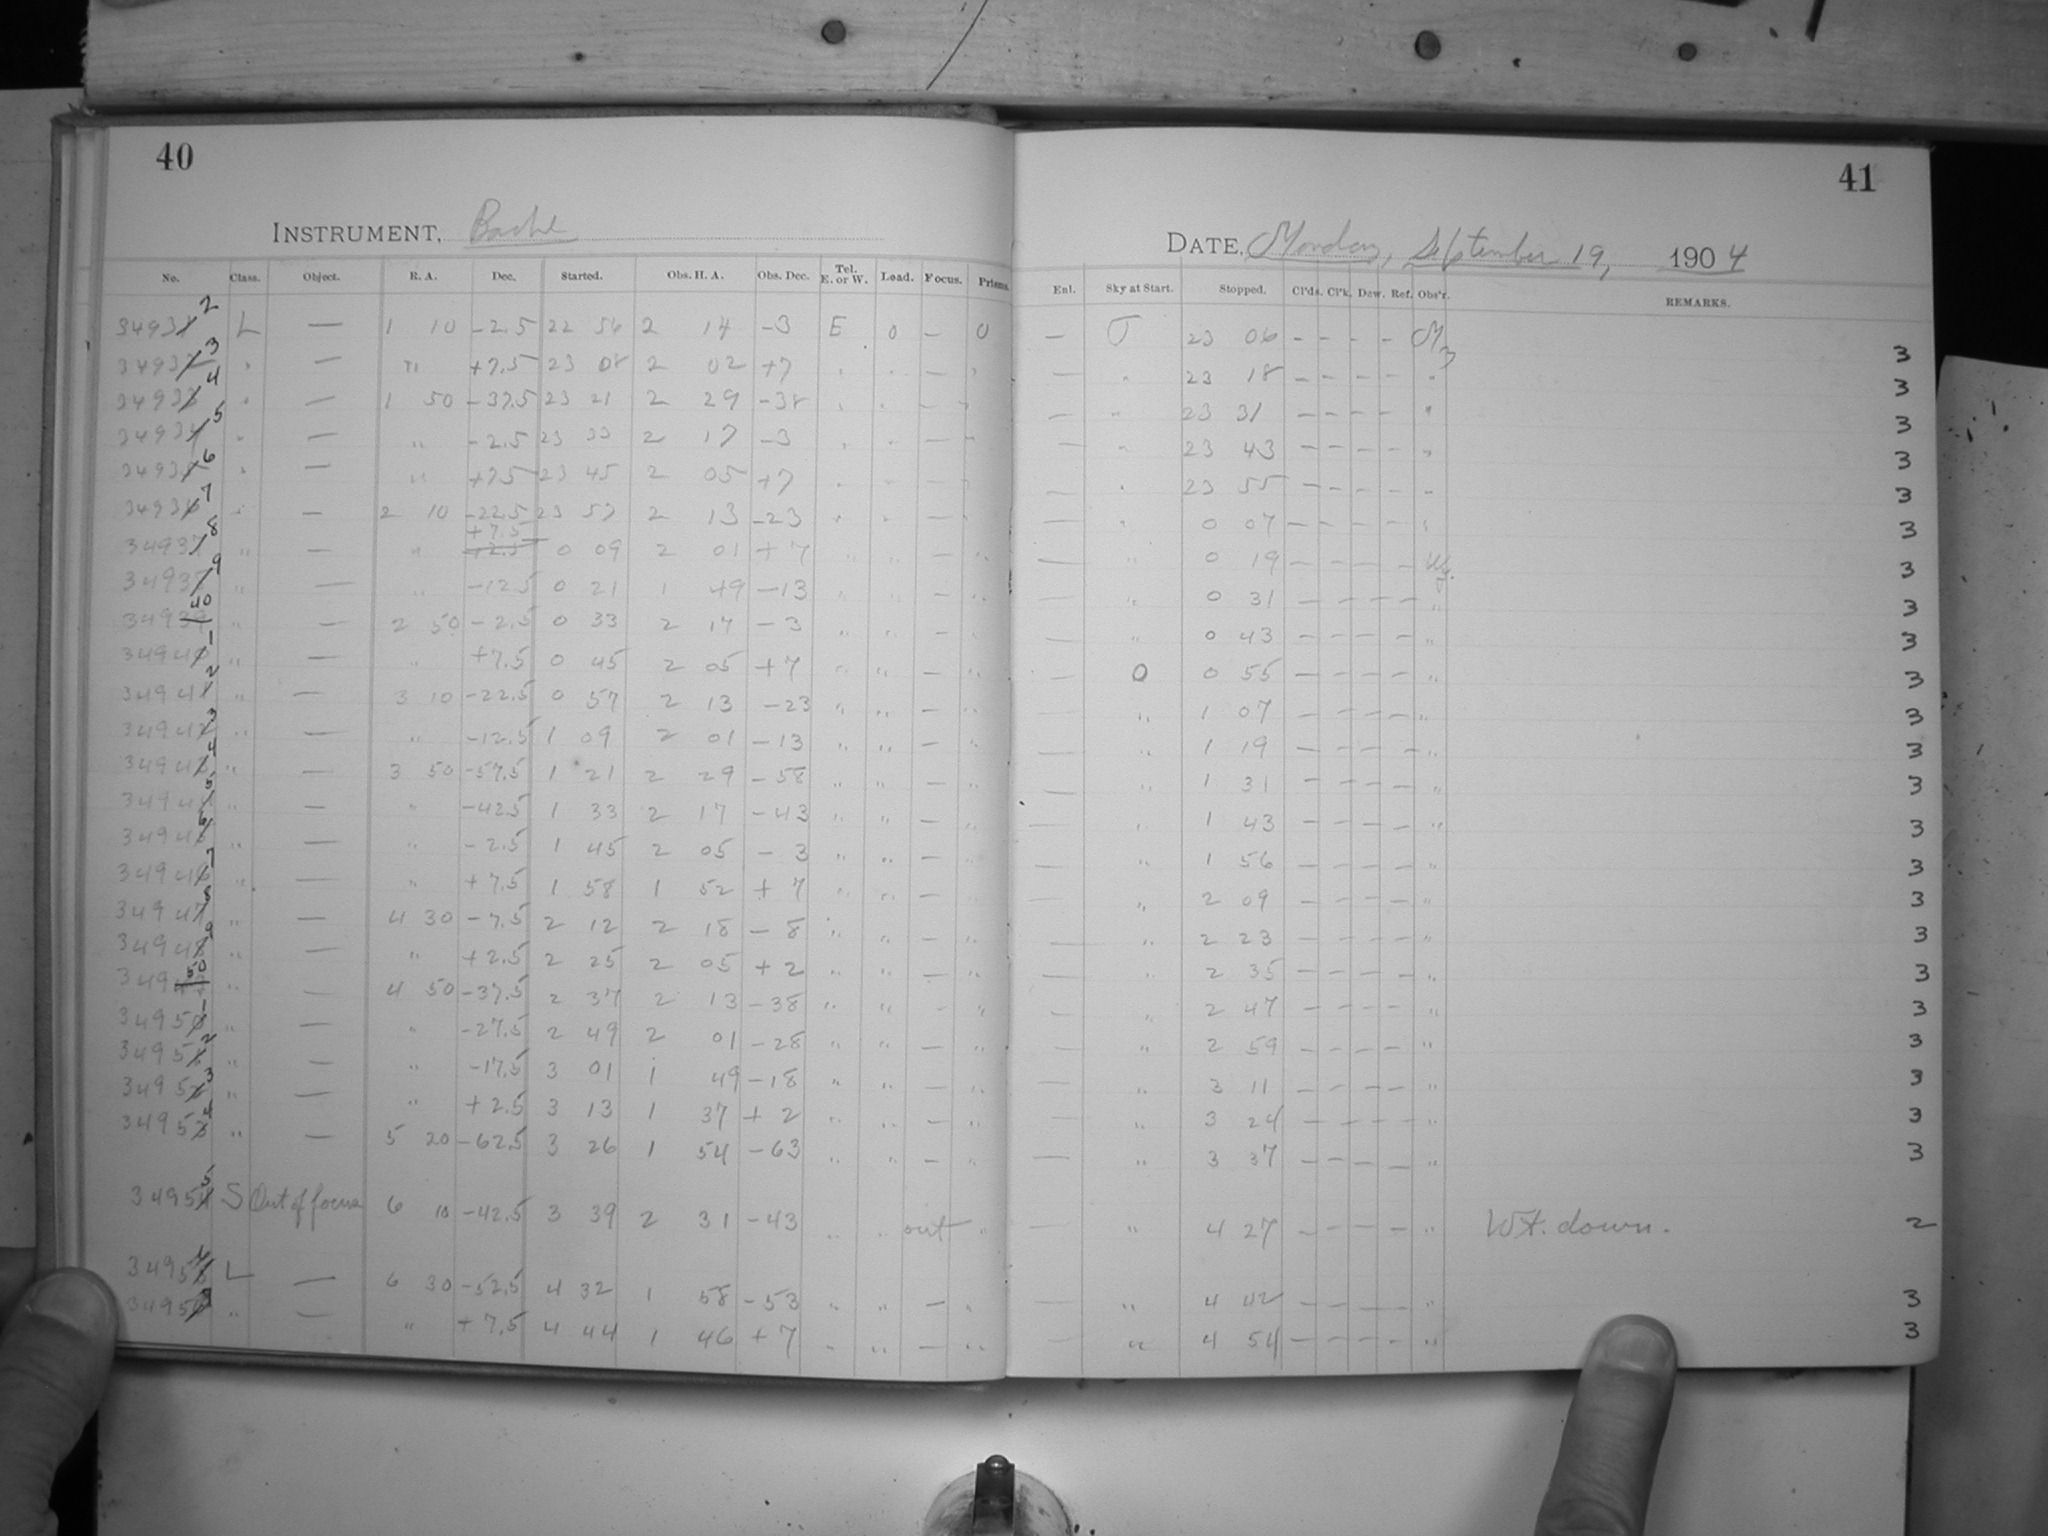 40
INSTRUMENT, Bache
No. Class. Object. R. A. Dec. Started. Obs. H. A. Obs. Dec. Tel. E. or W. Load. Focus. Prisms.
34932 L — 1 10 -2.5 22 56 2 14 -3 E 0 — 0
34933 " — " +7.5 23 08 2 02 +7 " " — "
34934 " — 1 50 -37.5 23 21 2 29 -38 " " — "
34935 " — " -2.5 23 33 2 17 -3 " " — "
34936 " — " +7.5 23 45 2 05 +7 " " — "
34937 " — 2 10 -22.5 23 57 2 13 -23 " " — "
34938 " — " +7.5 0 09 2 01 +7 " " — "
34939 " — " -12.5 0 21 1 49 -13 " " — "
34940 " — 2 50 -2.5 0 33 2 17 -3 " " — "
34941 " — " +7.5 0 45 2 05 +7 " " — "
34942 " — 3 10 -22.5 0 57 2 13 -23 " " — "
34943 " — " -12.5 1 09 2 01 -13 " " — "
34944 " — 3 50 -57.5 1 21 2 29 -58 " " — "
34945 " — " -42.5 1 33 2 17 -43 " " — "
34946 " — " -2.5 1 45 2 05 -3 " " — "
34947 " — " +7.5 1 58 1 52 +7 " " — "
34948 " — 4 30 -7.5 2 12 2 18 -8 " " — "
34949 " — " +2.5 2 25 2 05 +2 " " — "
34950 " — 4 50 -37.5 2 37 2 13 -38 " " — "
34951 " — " -27.5 2 49 2 01 -28 " " — "
34952 " — " -17.5 3 01 1 49 -18 " " — "
34953 " — " +2.5 3 13 1 37 +2 " " — "
34954 " — 5 20 -62.5 3 26 1 54 -63 " " — "
34955 S Out of focus 6 10 -42.5 3 39 2 31 -43 " " out "
34956 L — 6 30 -52.5 4 32 1 58 -53 " " — "
34957 " — " +7.5 4 44 1 46 +7 " " — "
41
DATE, Monday, September 19, 1904
Enl. Sky at Start. Stopped. Cl'ds. Cl'k. Dew. Ref. Obs'r. REMARKS.
— 23 06 — — — — 3
— " 23 18 — — — — " 3
— " 23 31 — — — — " 3
— " 23 43 — — — — " 3
— " 23 55 — — — — " 3
— " 0 07 — — — — " 3
— " 0 19 — — — — Wy. 3
— " 0 31 — — — — " 3
— " 0 43 — — — — " 3
— 0 0 55 — — — — " 3
— " 1 07 — — — — " 3
— " 1 19 — — — — " 3
— " 1 31 — — — — " 3
— " 1 43 — — — — " 3
— " 1 56 — — — — " 3
— " 2 09 — — — — " 3
— " 2 23 — — — — " 3
— " 2 35 — — — — " 3
— " 2 47 — — — — " 3
— " 2 59 — — — — " 3
— " 3 11 — — — — " 3
— " 3 24 — — — — " 3
— " 3 37 — — — — " 3
— " 4 27 — — — — " Wt. down. 2
— " 4 42 — — — — " 3
— " 4 54 — — — — " 3